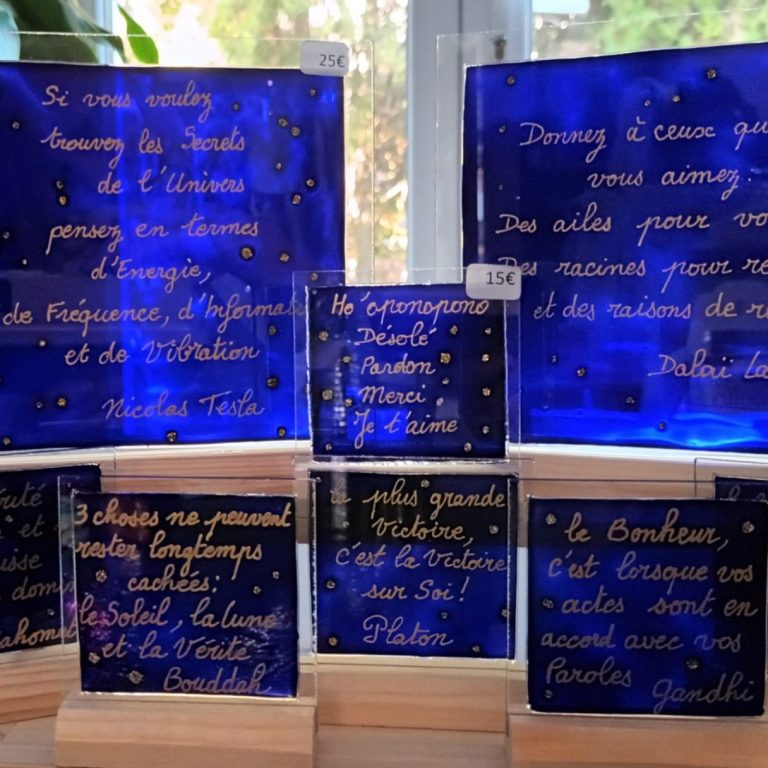 25€
Si vous voulez
trouvez les Secrets
de l'Univers
pensez en termes
d'Energie,
de Fréquence, d'Informati
et de Vibration
Nicolas Tesla
Donnez à ceux qu
vous aimez:
Des ailes pour vo
Des racines pour re
et des raisons de r
Dalaï La
15€
Ho'oponopono
Désolé
Pardon
Merci
Je t'aime
3 choses ne peuvent
rester longtemps
cachées:
le Soleil, la lune
et la Vérité
Bouddah
la plus grande
Victoire,
C'est la Victoire
sur Soi!
Platon
le Bonheur,
c'est lorsque vos
actes sont en
accord avec vos
Paroles
Gandhi
et